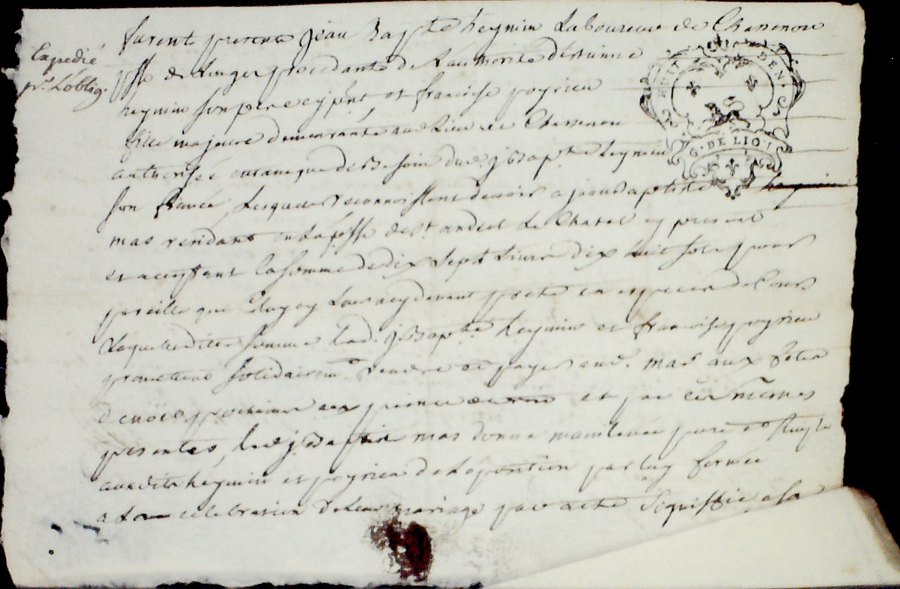 Expedié
pr. l'oblig.
furent presents jean Bapte Reynier Laboureur de Chassenou
psse de Luzer procedante de l'authorité d'étienne
Reynier son pere cy pnt, et francoise poyrieu
fille majeure demeurante au lieu de Chassenou
authorisée en tant que de Besoin dud. j Bapte Reynier
son fiancé, Lesquels reconnoissent devoir a jean Baptiste
mas rendant en la psse de st andeol le Chatel cy present
et acceptant la somme de dix sept livres dix huit sols pour
pareille que celuy cy leur a cy devant preté en especes de Cours
Laquelle ditte somme led. j Bapte Reynier et francoise poyrieu
promettent solidairemt rendre et payer aud. mas aux fetes
de noel prochaines et par ces mêmes
presentes, led. j Baptiste mas donne mainlevée pure et simple
auxdits Reynier et poyrieu de l'oposition par luy formée
a la celebration de leur mariage par acte signiffié a sa
G. DE LIO